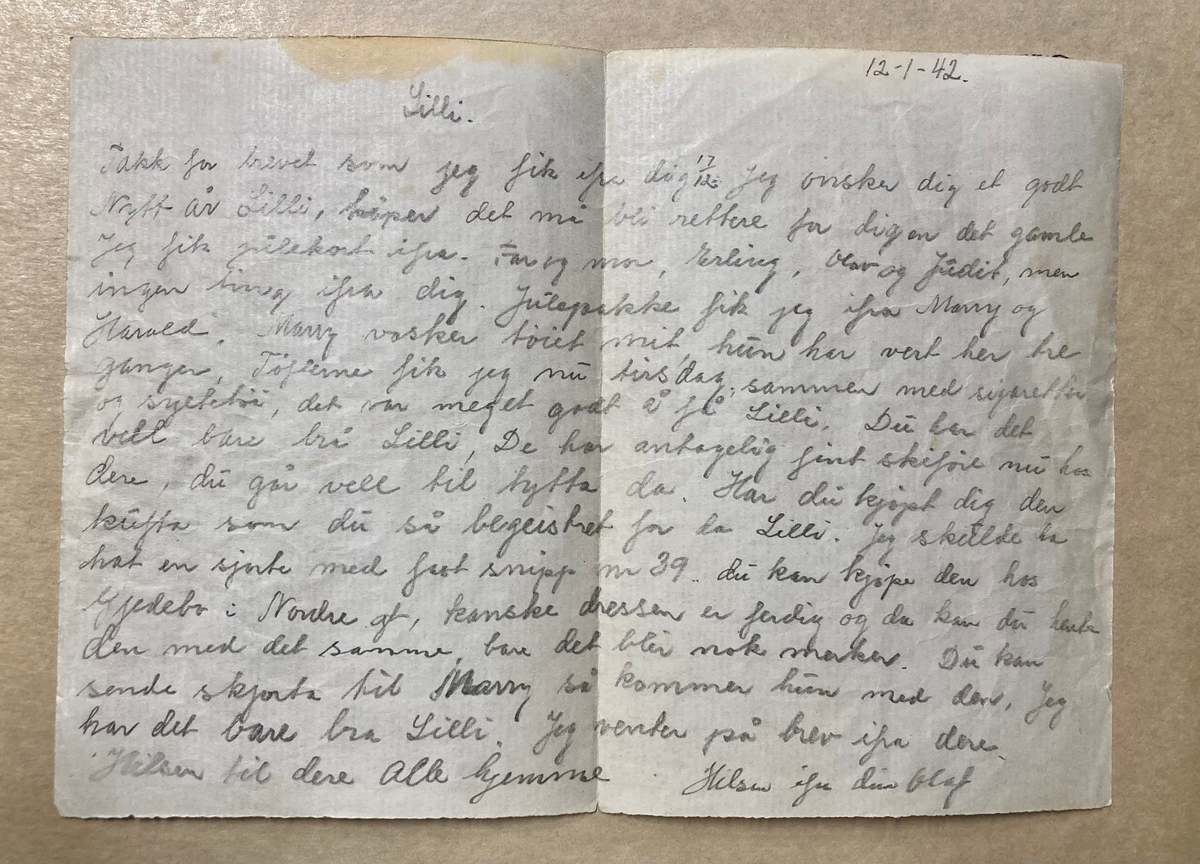 12-1-42.
Lilli.
Takk for brevet som jeg fik ifra dig 17/12. Jeg ønsker dig et godt
Nytt år Lilli, håper det må bli rettere for dig en det gamle
Jeg fik julekort ifra. Far og mor, Erling, Olav og Judit, men
ingen ting ifra dig. Julepakke fik jeg ifra Marry og
Harald. Marry vasker tøiet mit, hun har vert her tre
ganger, Tøflerne fik jeg nu tirsdag, sammen med sigaretter
og syltetøi, det var meget godt å få Lilli. Du har det
vell bare brå Lilli, De har antagelig fint skiføre nu hos
dere, du går vell til hytta da. Har du kjøpt dig den
kufta som du så begeistret for da Lilli. Jeg skulde ha
hat en sjorte med fast snipp nr 39. du kan kjøpe den hos
i Nordre gt, kanske dressen er ferdig og da kan du hente
den med det samme, bare det blir nok merker. Du kan
sende skjorta til Marry så kommer hun med den, Jeg
har det bare bra Lilli. Jeg venter på brev ifra dere.
Hilsen til dere Alle hjemme Hilsen ifra din Olaf